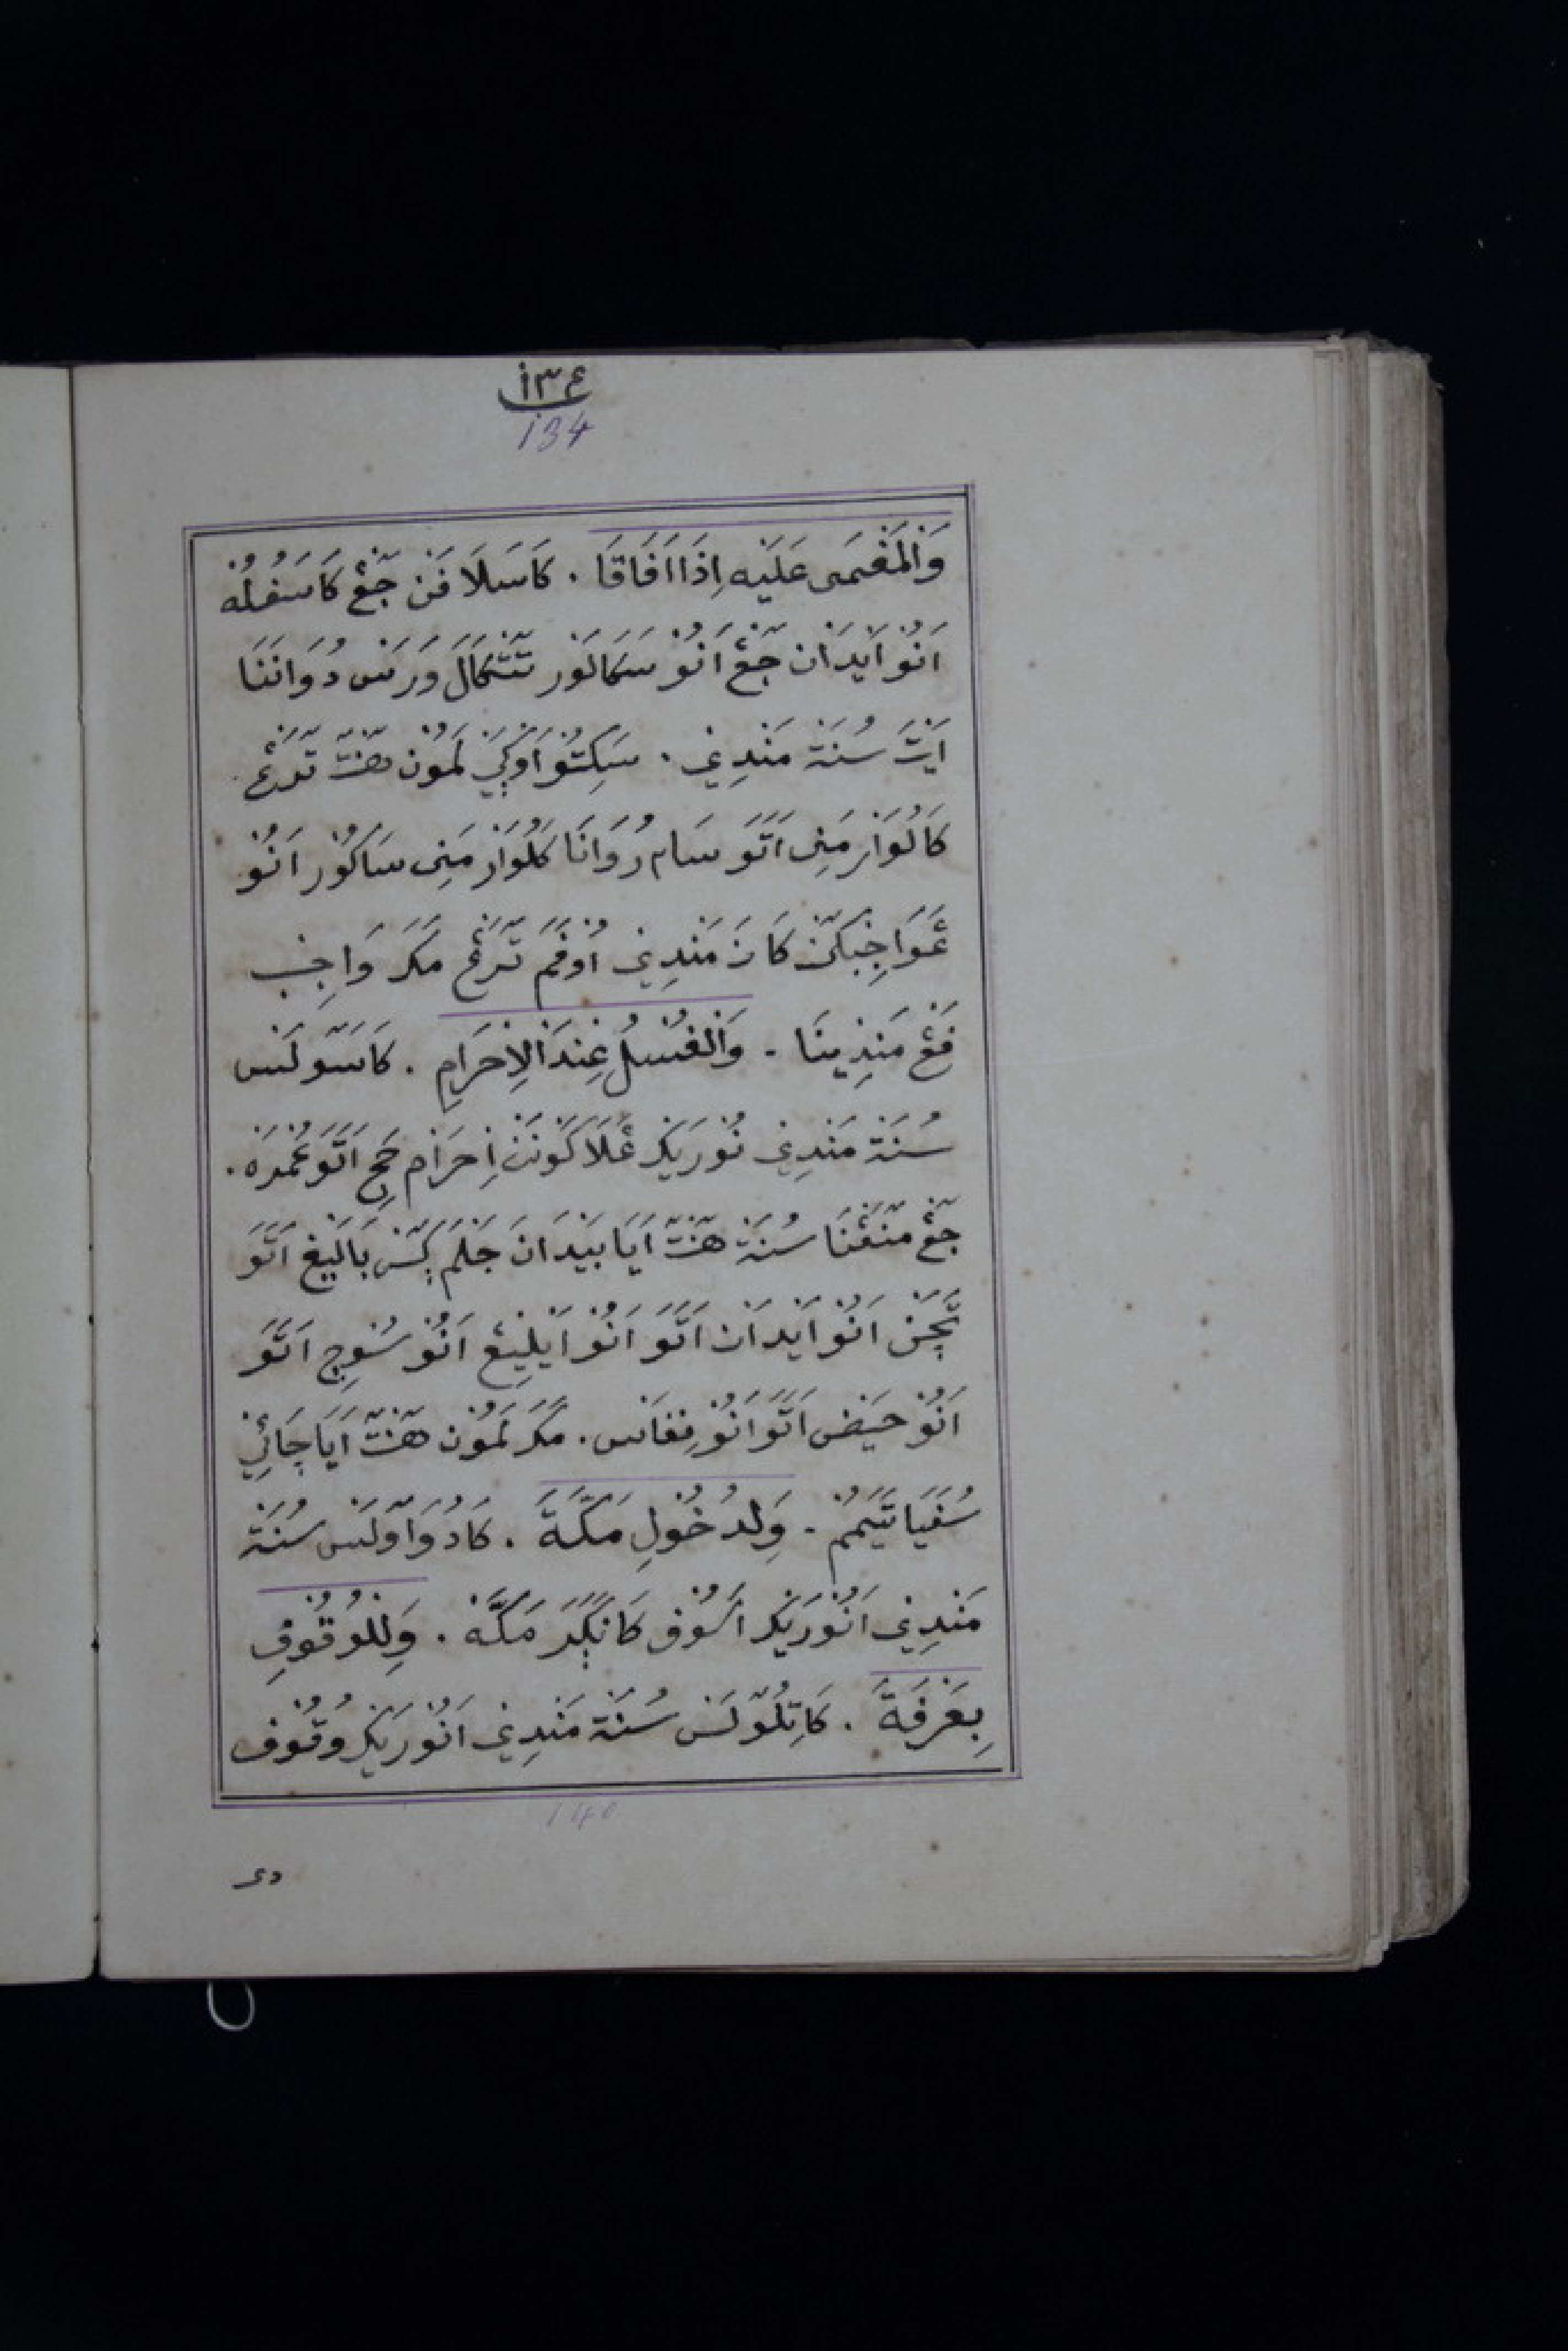 ١٣٤
134
وَالْمَغْمَى عَلَيْهِ اِذَا اَفَاقَا . كَاسَلَافَنْ جٓڠْ كَاسَفُلُه
اَنُوْ اَيْدَانْ جٓڠْ اَنُوْ سَكَالَوْر تٓتٓكَالَ وَرَسْ دُوَانَنَا
اَيْتَ سُنَة مَنْدِيْ . سَكِتُوْ اَوْكٜيْ لَمُوْن هٓنْتٓ تٓرَڠْ .
كَالُوَارْ مَنِى اَتَوَ سَام رُوَانَا كَلُوَارْ مَنِى سَاكُوْر اَنُوْ
ڠَوَاجِبْكٓنْ كَانَ مَنْدِيْ اُوْفَمَ تٓرَڠْ مَكَرَ وَاجِبْ
فَڠْ مَنْدِيْنَا . وَالْغُسْلُ عِنْدَ الْاِحْرَامِ . كَاسَوْلَسْ
سُنَة مَنْدِيْ نُوْرَيْكَ ڠَلَاكَوْنَنْ اِحْرَامْ حَجِّ اَتَوَ عُمْرَهْ .
جٓڠْ مٓنَڠْنَا سُنَة هٓنْتٓ اَيَا بَيْدَانَ جَلْمَ كٜسْ بَالَيْغ اَتَوَ
تَچَنْ اَنُوْ اَيْدَانْ اَتَوَ اَنُوْ اَيْلِيْڠ اَنُوْ سُوْچِ اَتَوَ
اَنُوْ حَيْض اَتَوَ اَنُوْ نِفَاس . مَكَرَ لَمُوْن هٓنْتٓ اَيَا چَائِيْ
سُفَيَا تَيَمُمْ . وَلِدُخُوْلِ مَكَّةَ . كَادُوَاوْلَسْ سُنَة
مَنْدِيْ اَنُوْرَيْكَ اَسُوْف كَانَكٜرَ مَكَّهْ . وَلِلْوُقُوْفِ
بِعَرَفَةَ . كَاتِلُوْلَسْ سُنَة مَنْدِيْ اَنُوْرَيْكَ وُقُوْف
140
دى